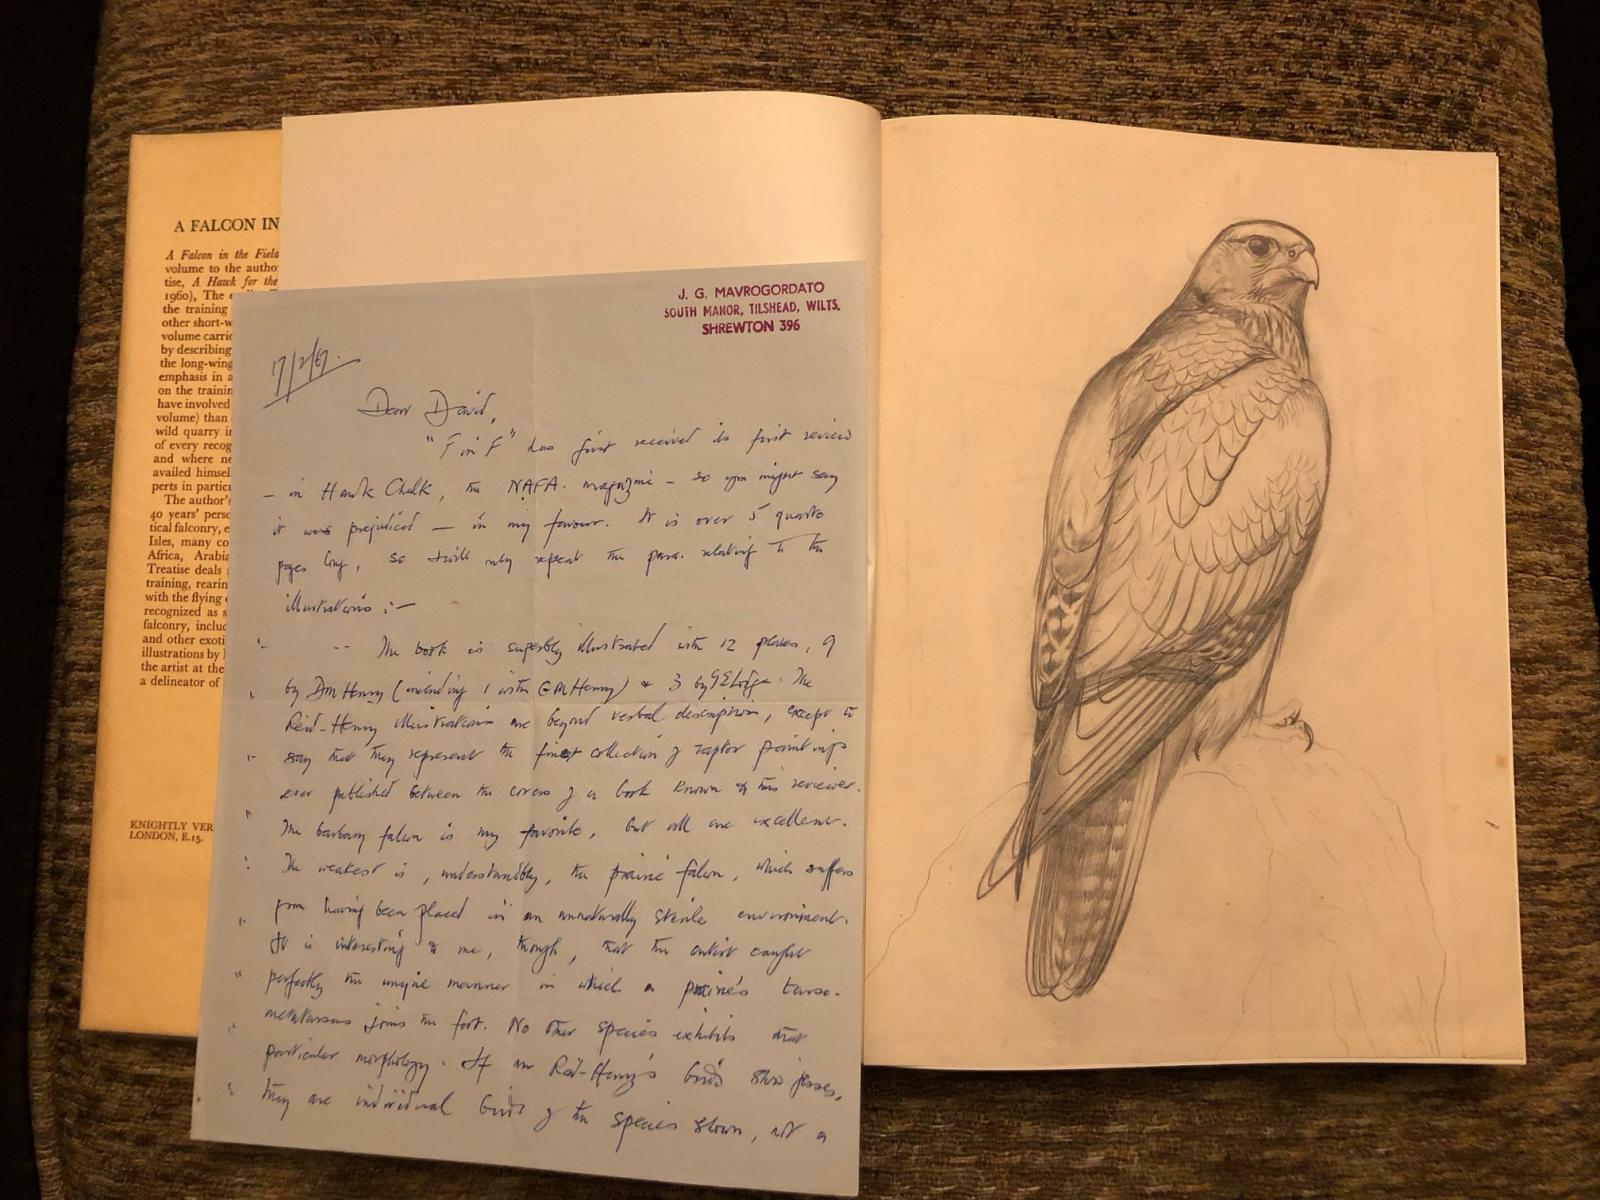 A FALCON IN
A Falcon in the Field
volume to the autho
tise, A Hawk for the
1960), The
the training
other short-w
volume carri
by describing
the long-wing
emphasis in a
on the trainin
have involved
volume) than
wild quarry i
of every recog
and where ne
availed himsel
perts in partic
The author's
40 years' pers
tical falconry, e
Isles, many co
Africa, Arabi
Treatise deals
training, rearin
with the flying
recognized as s
falconry, inclu
and other exoti
illustrations by
the artist at the
a delineator of
KNIGHTLY VER
LONDON, E.15.
J. G. MAVROGORDATO
SOUTH MANOR, TILSHEAD, WILTS.
SHREWTON 396
17/2/67.
Dear David,
"F in F" has just received its first review
- in Hawk Chalk, the NAFA. magazine - so you might say
it was prejudiced - in my favour. It is over 5 quarto
pages long, so I will only repeat the para. relating to the
illustrations :-
-- The book is superbly illustrated with 12 plates, 9
by Dm Henry (including 1 with G M Henry) & 3 by G E Lodge. The
Reid-Henry illustrations are beyond verbal description, except to
say that they represent the finest collection of raptor paintings
ever published between the covers of a book known to this reviewer.
The barbary falcon is my favorite, but all are excellent.
The weakest is, understandbly, the prairie falcon, which suffers
from having been placed in an unnaturally sterile environment.
It is interesting to me, though, that the artist caught
perfectly the unique manner in which a prairie's tarso-
metatarsus joins the foot. No other species exhibits that
particular morphology. If in Reid-Henry's birds show jesses,
they are individual birds of the species shown, not a